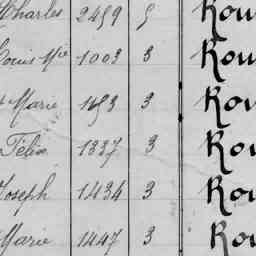 Charles 2459 5 Rou
Louis Mie 1003 3 Rou
Marie 1653 3 Rou
Félix 1337 3 Rou
Joseph 1434 3 Rou
Marie 1447 3 Rou